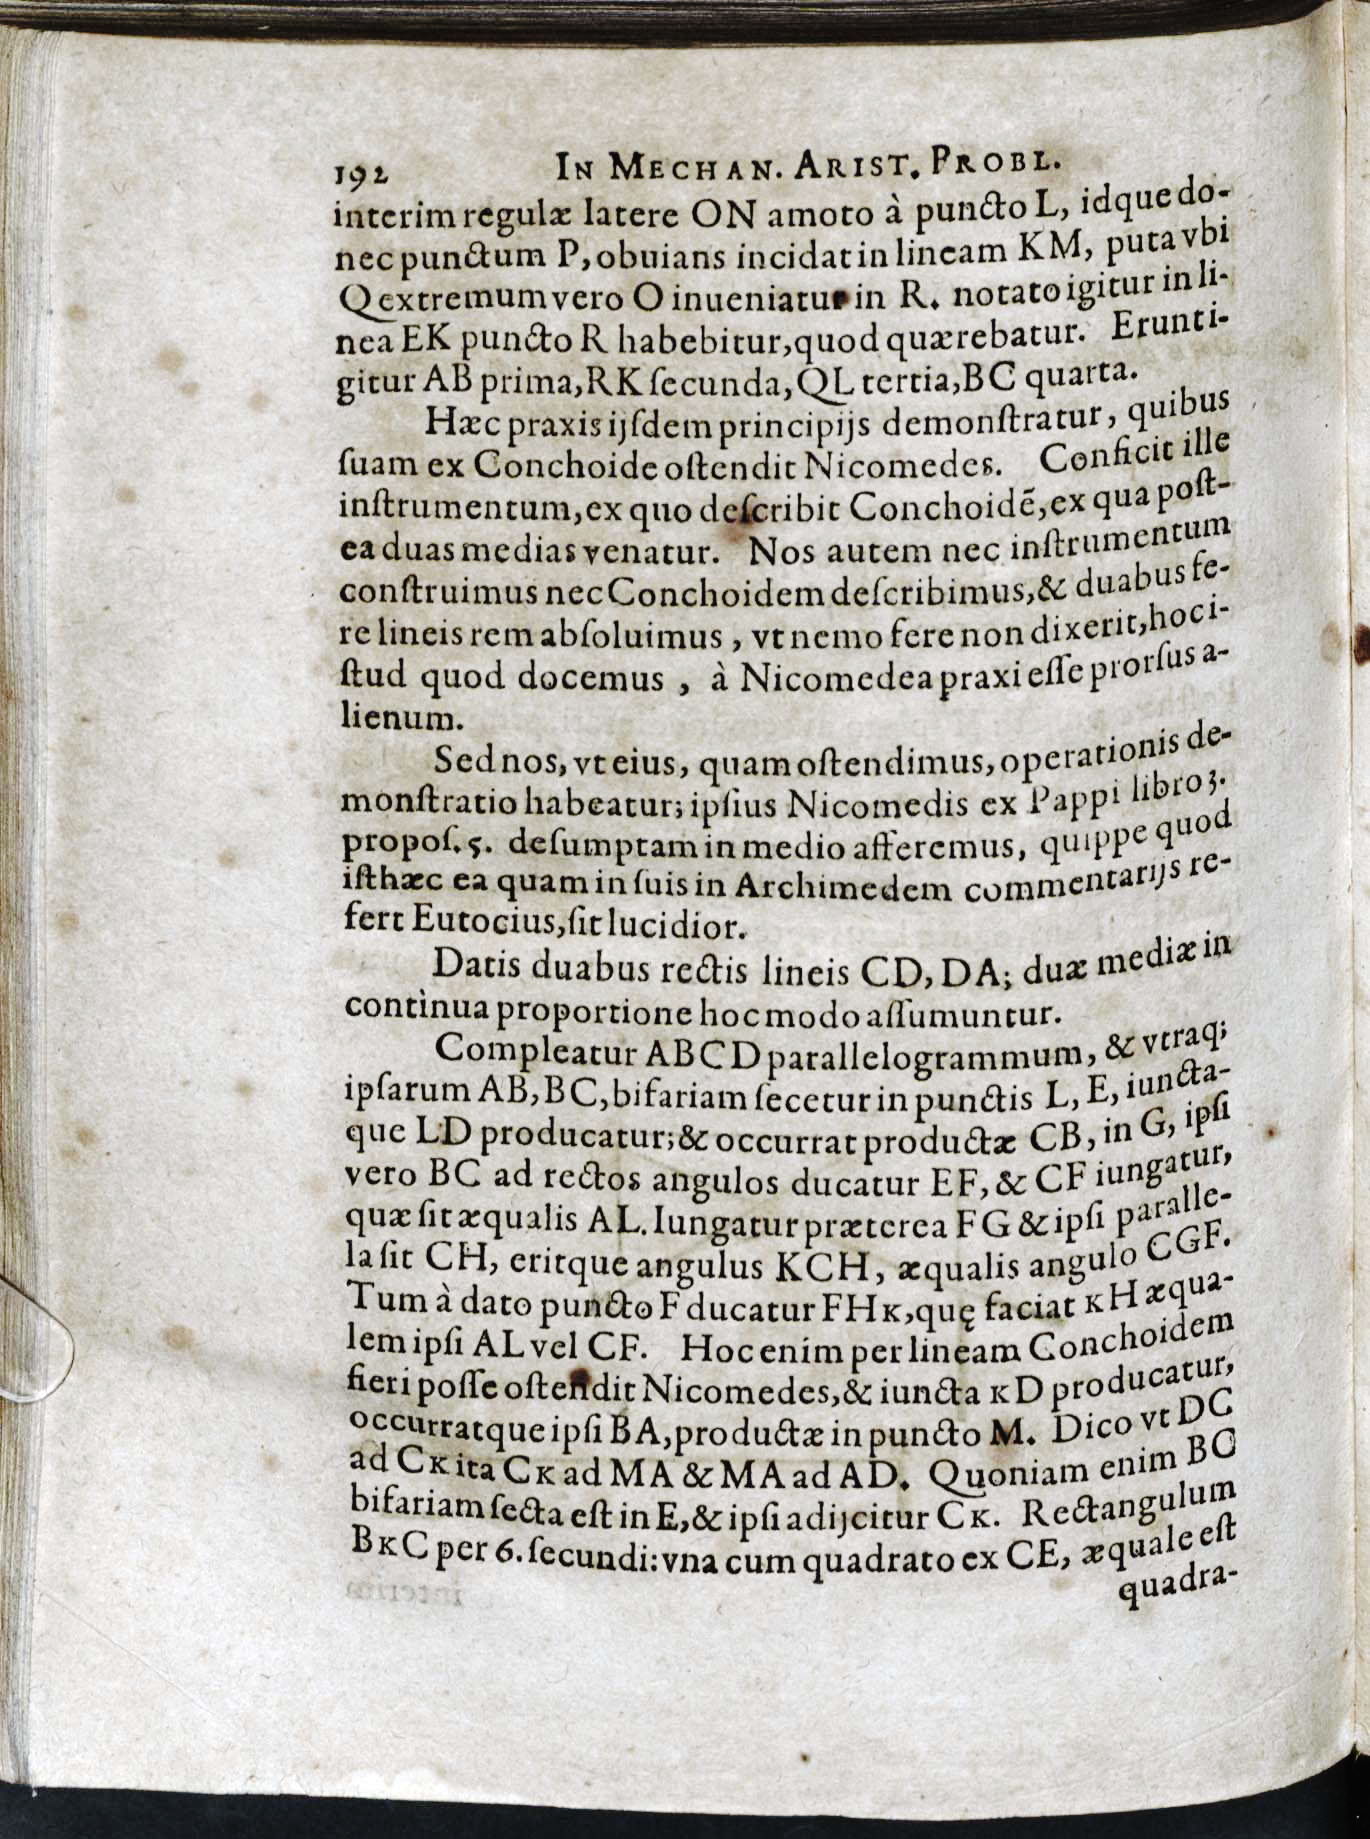 192 IN MECHAN. ARIST. PROBL.
interim regulæ latere ON amoto à puncto L, idque do-
nec punctum P, obuians incidat in lineam KM, puta vbi
Q extremum vero O inueniatur in R. notato igitur in li-
nea EK puncto R habebitur, quod quærebatur. Erunt i-
gitur AB prima, RK ſecunda, QL tertia, BC quarta.
Hæc praxis ijſdem principijs demonſtratur, quibus
ſuam ex Conchoide oſtendit Nicomedes. Conficit ille
inſtrumentum, ex quo deſcribit Conchoidẽ, ex qua poſt-
ea duas medias venatur. Nos autem nec inſtrumentum
conſtruimus nec Conchoidem deſcribimus, & duabus fe-
re lineis rem abſoluimus, vt nemo fere non dixerit, hoc i-
ſtud quod docemus, à Nicomedea praxi eſſe prorſus a-
lienum.
Sed nos, vt eius, quam oſtendimus, operationis de-
monſtratio habeatur; ipſius Nicomedis ex Pappi libro 3.
propoſ. 5. deſumptam in medio afferemus, quippe quod
iſthæc ea quam in ſuis in Archimedem commentarijs re-
fert Eutocius, ſit lucidior.
Datis duabus rectis lineis CD, DA; duæ mediæ in
contìnua proportione hoc modo aſſumuntur.
Compleatur ABCD parallelogrammum, & vtraq;
ipſarum AB, BC, bifariam ſecetur in punctis L, E, iuncta-
que LD producatur; & occurrat productæ CB, in G, ipſi
vero BC ad rectos angulos ducatur EF, & CF iungatur,
quæ ſit æqualis AL. Iungatur præterea FG & ipſi paralle-
la ſit CH, eritque angulus KCH, æqualis angulo CGF.
Tum à dato puncto F ducatur FHK, quę faciat KH æqua-
lem ipſi AL vel CF. Hoc enim per lineam Conchoidem
fieri poſſe oſtendit Nicomedes, & iuncta KD producatur,
occurratque ipſi BA, productæ in puncto M. Dico vt DC
ad CK ita CK ad MA & MA ad AD. Quoniam enim BC
bifariam ſecta eſt in E, & ipſi adijcitur CK. Rectangulum
BKC per 6. ſecundi: vna cum quadrato ex CE, æquale eſt
quadra-